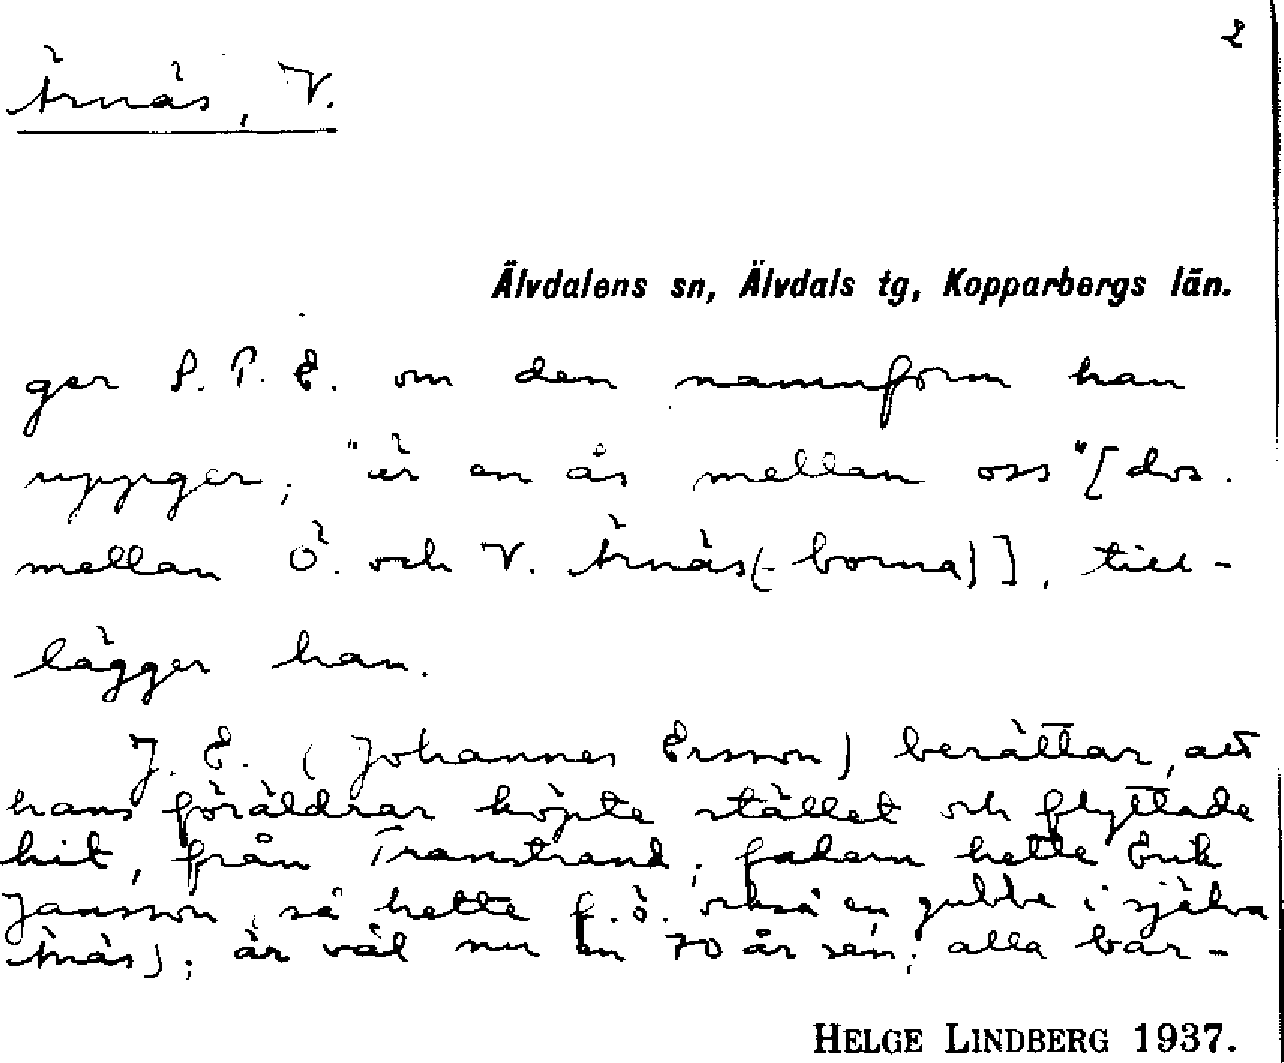 2
Ärnäs, V.
Älvdalens sn, Älvdals tg, Kopparbergs län.
ger P. P. E. om den namnform han
uppger; "är en ås mellan oss" [dvs.
mellan Ö. och V. Ärnäs(-borna)], till-
lägger han.
J. E. (Johannes Ersson) berättar, att
hans föräldrar köpte stället och flyttade
hit, från Transtrand; fadern hette Erik
Jansson, så hette f.ö. också en gubbe i själva
Ärnäs); är väl nu en 70 år sen; alla bar-
HELGE LINDBERG 1937.